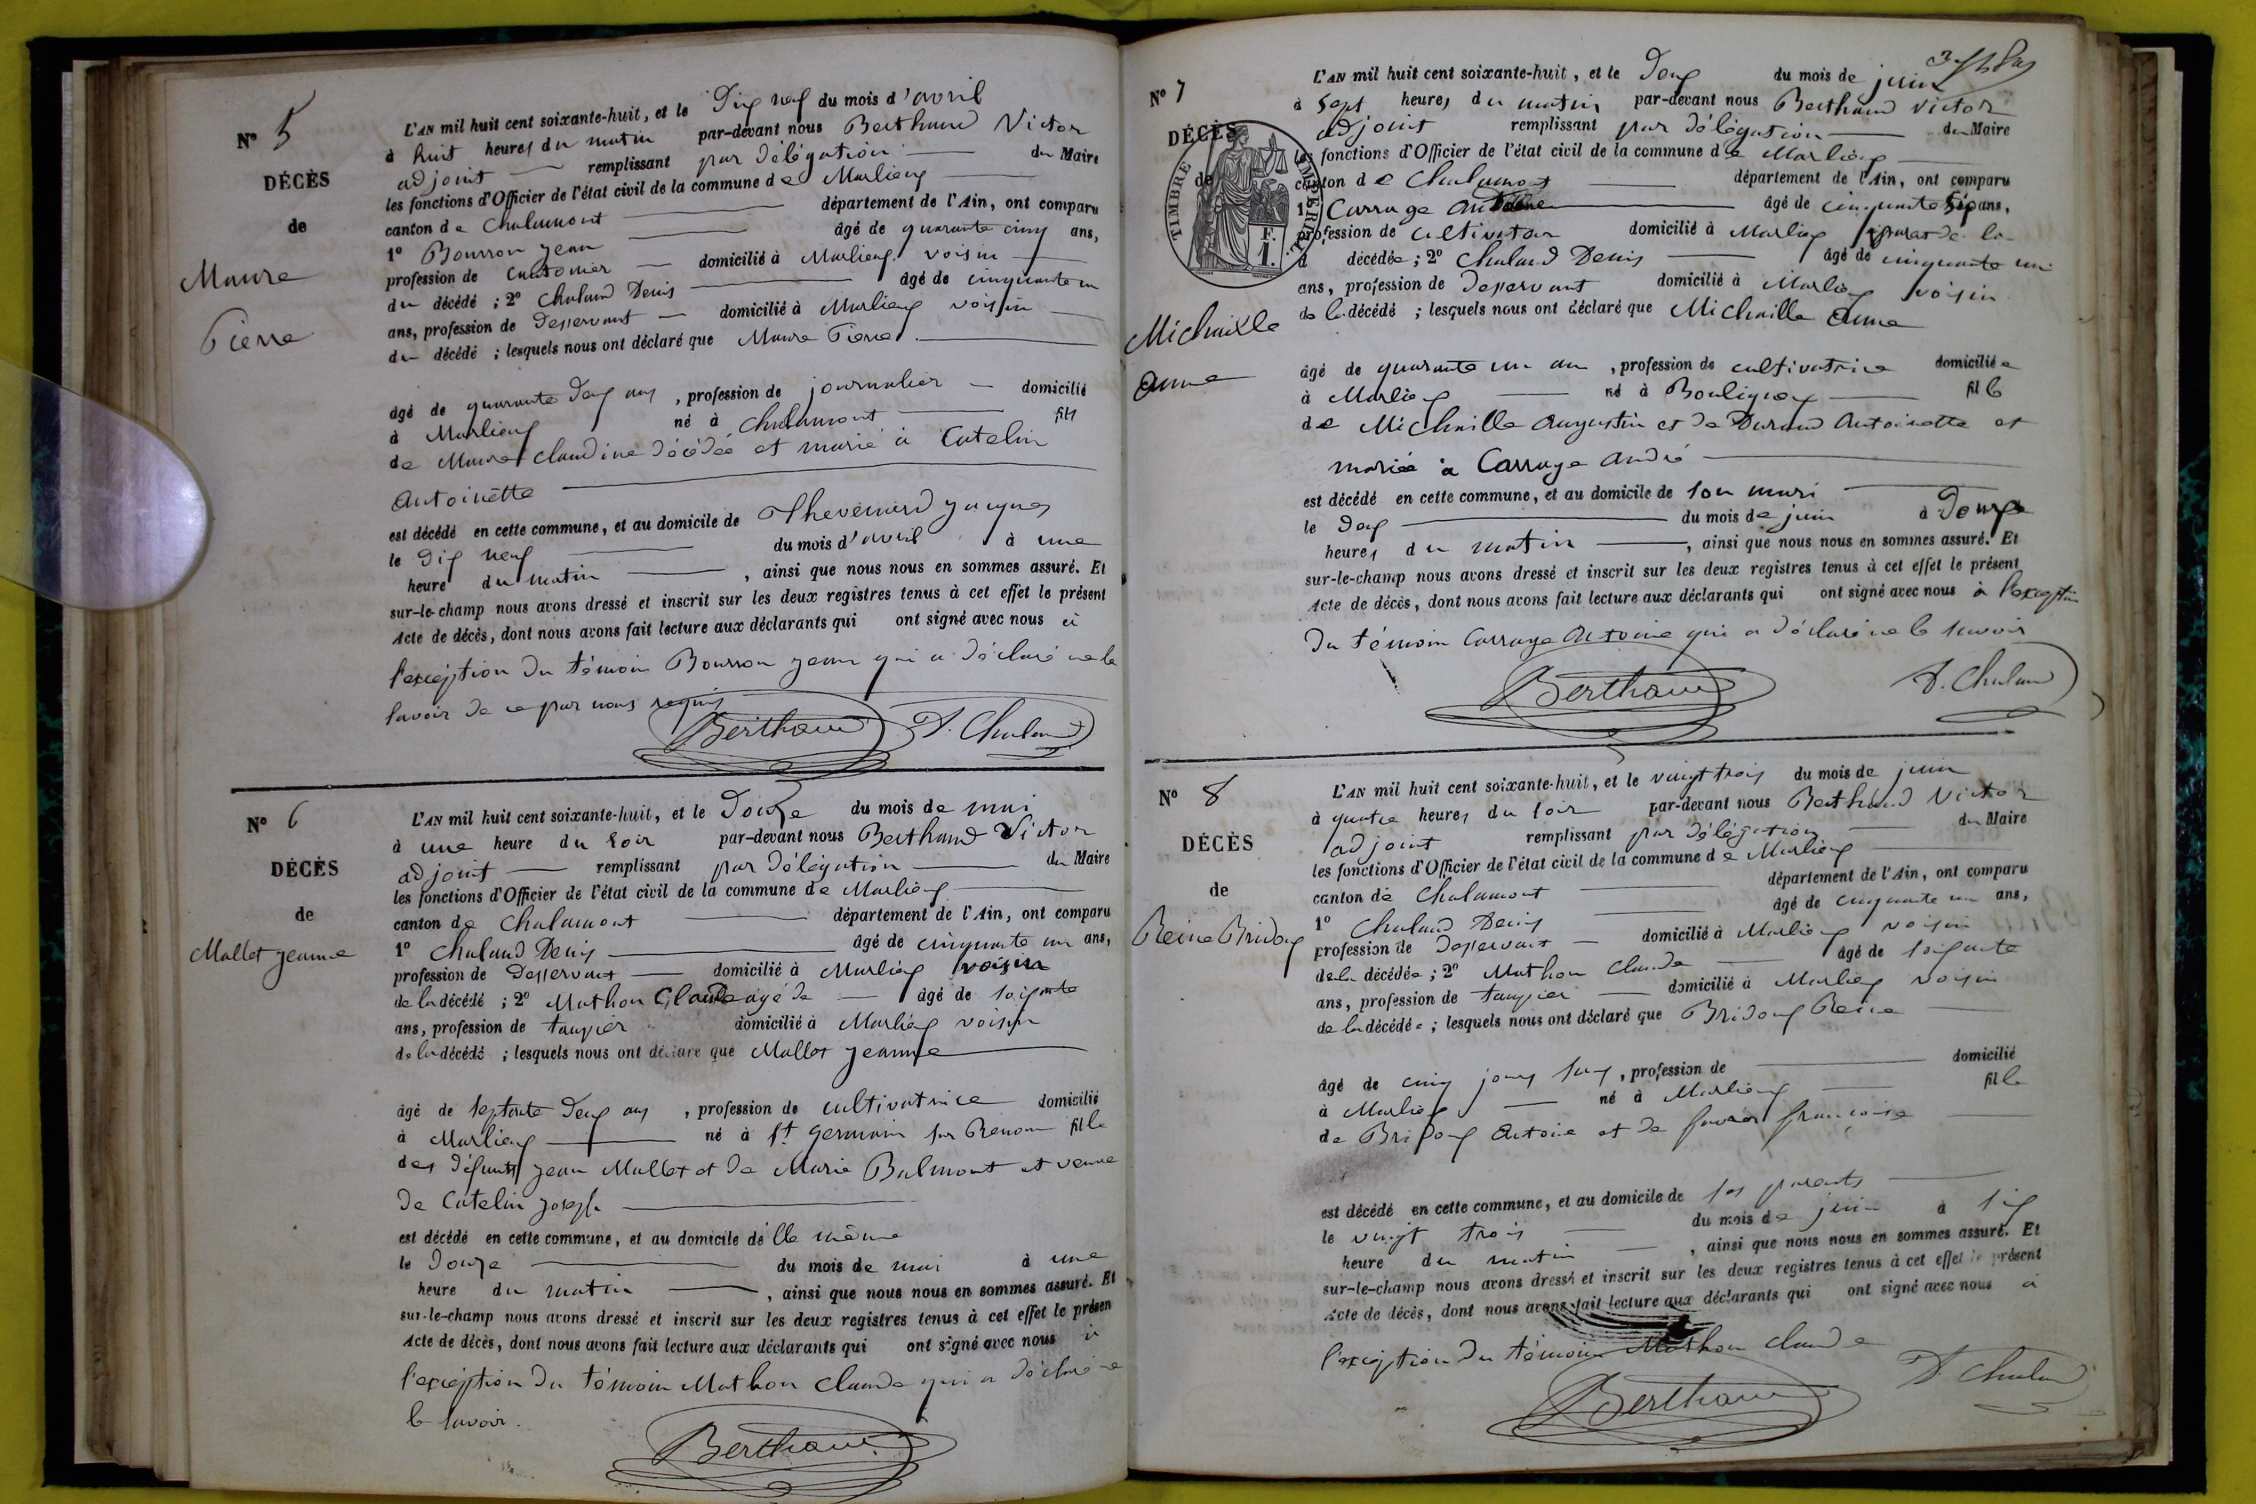 N° 5
DÉCÈS
de
Maure
Pierre
L'AN mil huit cent soixante-huit, et le Dix neuf du mois d'avril
à huit heures du matin par-devant nous Berthaud Victor
adjoint remplissant par délégation du Maire
les fonctions d'Officier de l'état civil de la commune de Marlieux
canton de Chalamont département de l'Ain, ont comparu
1° Bourron Jean âgé de quarante cinq ans,
profession de cantonier domicilié à Marlieux voisin
du décédé ; 2° Chaland Denis âgé de cinquante un
ans, profession de Desservant domicilié à Marlieux voisin
du décédé ; lesquels nous ont déclaré que Maure Pierre
âgé de quarante deux ans, profession de journalier domicilié
à Marlieux né à Chalamont fils
de Maure Claudine décédée et marié à Catelin
Antoinette
est décédé en cette commune, et au domicile de Thevenard Jacques
le dix neuf du mois d'avril à une
heure du matin, ainsi que nous nous en sommes assuré. Et
sur-le-champ nous avons dressé et inscrit sur les deux registres tenus à cet effet le présent
Acte de décès, dont nous avons fait lecture aux déclarants qui ont signé avec nous à
l'exception du témoin Bourron Jean qui a déclaré ne le
savoir de ce par nous requis
Berthaud D. Chaland
N° 6
DÉCÈS
de
Mallet Jeanne
L'AN mil huit cent soixante-huit, et le Douze du mois de mai
à une heure du soir par-devant nous Berthaud Victor
adjoint remplissant par délégation du Maire
les fonctions d'Officier de l'état civil de la commune de Marlieux
canton de Chalamont département de l'Ain, ont comparu
1° Chaland Denis âgé de cinquante un ans,
profession de Desservant domicilié à Marlieux voisin
de la décédé ; 2° Mathon Claude agé de âgé de soixante
ans, profession de taupier domicilié à Marlieux voisin
de la décédé ; lesquels nous ont déclaré que Mallet Jeanne
âgé de septante deux ans, profession de cultivatrice domicilié
à Marlieux né à St Germain sur Renom fille
des défunts Jean Mallet et de Marie Balmont et veuve
de Catelin Joseph
est décédé en cette commune, et au domicile de Elle même
le Douze du mois de mai à une
heure du matin, ainsi que nous nous en sommes assuré. Et
sur-le-champ nous avons dressé et inscrit sur les deux registres tenus à cet effet le présen
Acte de décès, dont nous avons fait lecture aux déclarants qui ont signé avec nous à
l'exception du témoin Mathon Claude qui a déclaré ne
le savoir.
Berthaud
N° 7
DÉCÈS
de
TIMBRE IMPERIAL
1 F.
Michaille
Anne
L'AN mil huit cent soixante-huit, et le Deux du mois de juin
à sept heures du matin par-devant nous Berthaud Victor
adjoint remplissant par délégation du Maire
les fonctions d'Officier de l'état civil de la commune de Marlieux
canton de Chalamont département de l'Ain, ont comparu
1° Carrage Antoine âgé de cinquante six ans,
profession de cultivateur domicilié à Marlieux parent de la
décédée ; 2° Chaland Denis âgé de cinquante un
ans, profession de Desservant domicilié à Marlieux voisin
de la décédé ; lesquels nous ont déclaré que Michaille Anne
âgé de quarante un an, profession de cultivatrice domiciliée
à Marlieux né à Bouligneux fille
de Michaille Augustin et de Durand Antoinette et
mariée à Carrage André
est décédé en cette commune, et au domicile de son mari
le deux du mois de juin à Douze
heures du matin, ainsi que nous nous en sommes assuré. Et
sur-le-champ nous avons dressé et inscrit sur les deux registres tenus à cet effet le présent
Acte de décès, dont nous avons fait lecture aux déclarants qui ont signé avec nous à l'exception
du témoin Carrage Antoine qui a déclaré ne le savoir
Berthaud D. Chaland
N° 8
DÉCÈS
de
Reine Bridoux
L'AN mil huit cent soixante-huit, et le vingt trois du mois de juin
à quatre heures du soir par-devant nous Berthaud Victor
adjoint remplissant par délégation du Maire
les fonctions d'Officier de l'état civil de la commune de Marlieux
canton de Chalamont département de l'Ain, ont comparu
1° Chaland Denis âgé de cinquante un ans,
profession de Desservant domicilié à Marlieux voisin
de la décédée ; 2° Mathon Claude âgé de soixante
ans, profession de taupier domicilié à Marlieux voisin
de la décédée ; lesquels nous ont déclaré que Bridoux Reine
âgé de cinq jours, profession de domicilié
à Marlieux né à Marlieux fille
de Bridoux Antoine et de Favier Françoise
est décédé en cette commune, et au domicile de ses parents
le vingt trois du mois de juin à six
heure du matin, ainsi que nous nous en sommes assuré. Et
sur-le-champ nous avons dressé et inscrit sur les deux registres tenus à cet effet le présent
Acte de décès, dont nous avons fait lecture aux déclarants qui ont signé avec nous à
l'exception du témoin Mathon Claude
Berthaud D. Chaland